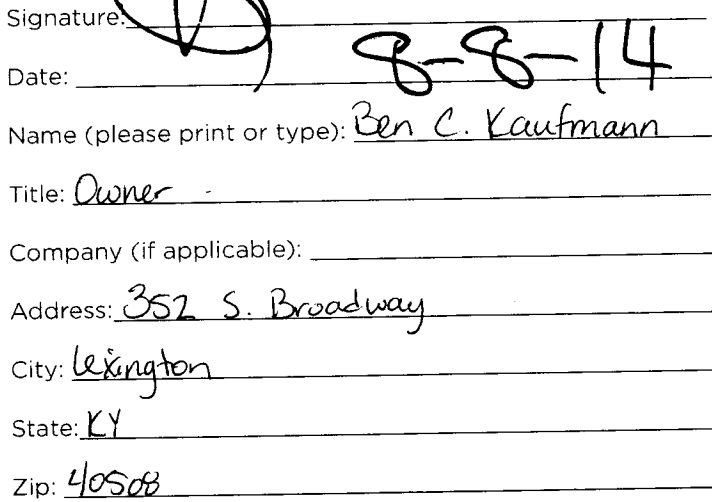 Signature:
Date: 8-8-14
Name (please print or type): Ben C. Kaufmann
Title: Owner
Company (if applicable):
Address: 352 S. Broadway
City: Lexington
State: KY
Zip: 40508